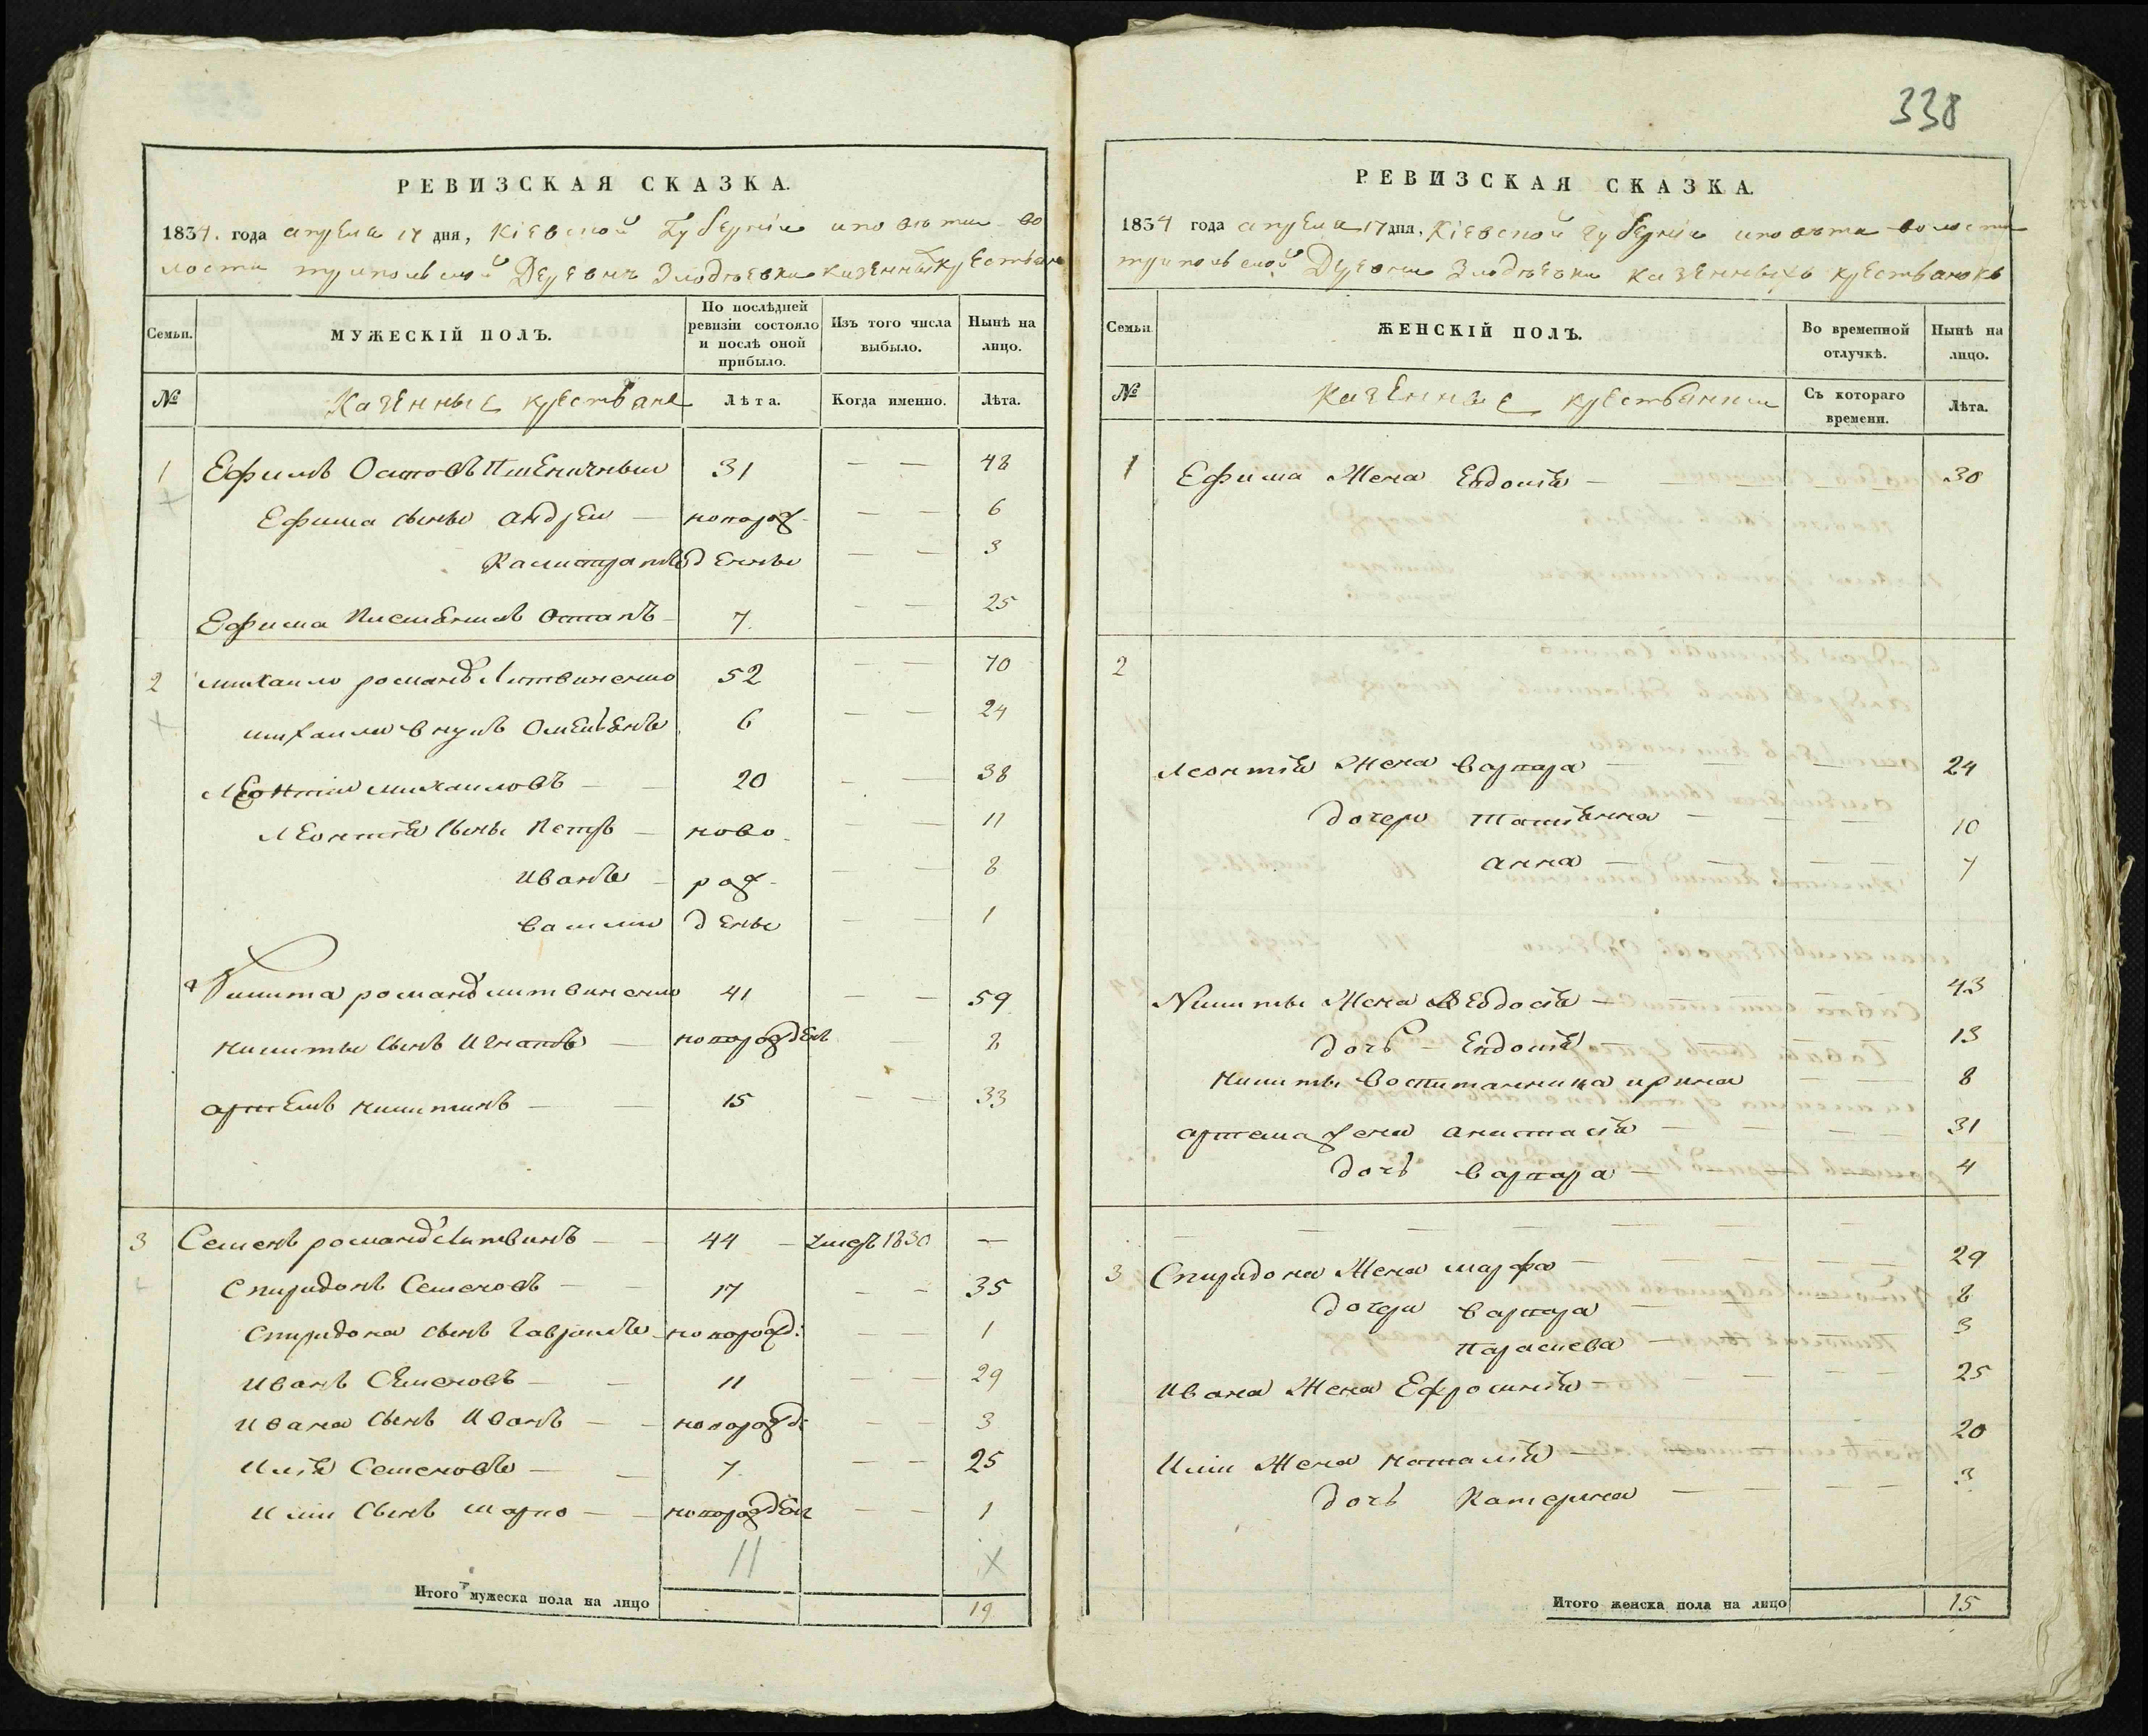 338
РЕВИЗСКАЯ СКАЗКА.
1834. года апреля 17 дня, Кіевской Губерніи и повѣта во
лости трипольской Деревни Злодѣевки казенныхъ крестьянъ
Семьи.
МУЖЕСКІЙ ПОЛЪ.
По послѣдней ревизіи состояло и послѣ оной прибыло.
Изъ того числа выбыло.
Нынѣ на лицо.
№ Казенные крестьяне Лѣта. Когда именно. Лѣта.
1 Ефимъ Пшеничный 31 — — 48
Ефима сыны Андрей — новорож- — — 6
Калистратъ денны — — 3
Ефима Остапъ 7. — — 25
2 михайло романовъ Литвиненко 52 — — 70
михайлы внукъ Омельянъ 6 — — 24
Леонтій михайловъ — — 20 — — 38
Леонтія сыны Петръ — ново- — — 11
Иванъ — рож- — — 8
василий дены — — 1
Никита романовъ литвиненко 41 — — 59
никиты сынъ Игнатъ — новорожден — 2
артемъ никитинъ — — 15 — — 33
3 Семенъ романовъ Литвинъ — — 44 — умеръ 1830 —
Спиридонъ Семеновъ — — 17 — — 35
Спиридона сынъ Гаврыило новорожд: — — 1
Иванъ Семеновъ — — 11 — — 29
Ивана сынъ Иванъ — — новорожд: — — 3
Илія Семеновъ — — 7. — — 25
Иліи сынъ марко — — новорожден — — 1
11 X
Итого мужеска пола на лицо 19
РЕВИЗСКАЯ СКАЗКА.
1834 года апреля 17 дня, Кіевской губерніи и повѣта волости
трипольской Деревни Злодѣевки казенныхъ крестьянокъ
Семьи
ЖЕНСКІЙ ПОЛЪ.
Во временной отлучкѣ.
Нынѣ на лицо.
№ Казенные крестьянки Съ котораго времени. Лѣта.
1 Ефима Жена Евдокія — 30
2
Леонтія Жена варвара — — — 24
дочери Татіанна — — — 10
анна — — — — 7
Никиты Жена Ѳеодосія — 43
дочь — Евдокія 13
никиты воспитанница ирина — — 8
артема жена анастасія — — — 31
дочь варвара — — — 4
3 Спиридона Жена марфа — — — — 29
дочери варвара — — — 8
Параскева — — 3
Ивана Жена Ефросинія — — — — 25
Иліи Жена наталія — 20
дочь Катерина — — — — 3
Итого женска пола на лицо 15